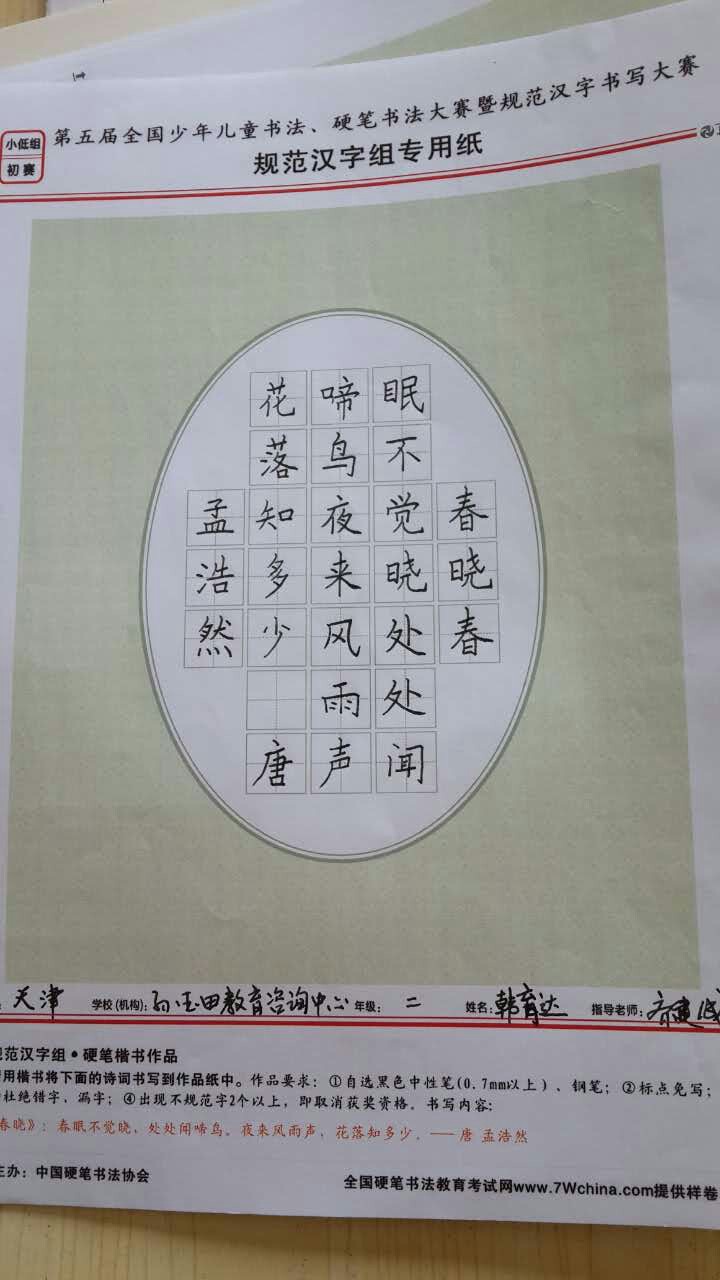 小低组
初赛
第五届全国少年儿童书法、硬笔书法大赛暨规范汉字书写大赛
规范汉字组专用纸
春晓春
眠不觉晓处处闻
啼鸟夜来风雨声
花落知多少 唐
孟浩然
天津 学校(机构): 田教育咨询中心 年级: 二 姓名: 韩育达 指导老师:
范汉字组·硬笔楷书作品
用楷书将下面的诗词书写到作品纸中。作品要求:①自选黑色中性笔(0.7mm以上)、钢笔;②标点免写;
杜绝错字,漏字;④出现不规范字2个以上,即取消获奖资格。书写内容:
春晓》:春眠不觉晓,处处闻啼鸟。夜来风雨声,花落知多少。——唐 孟浩然
主办:中国硬笔书法协会
全国硬笔书法教育考试网www.7Wchina.com提供样卷